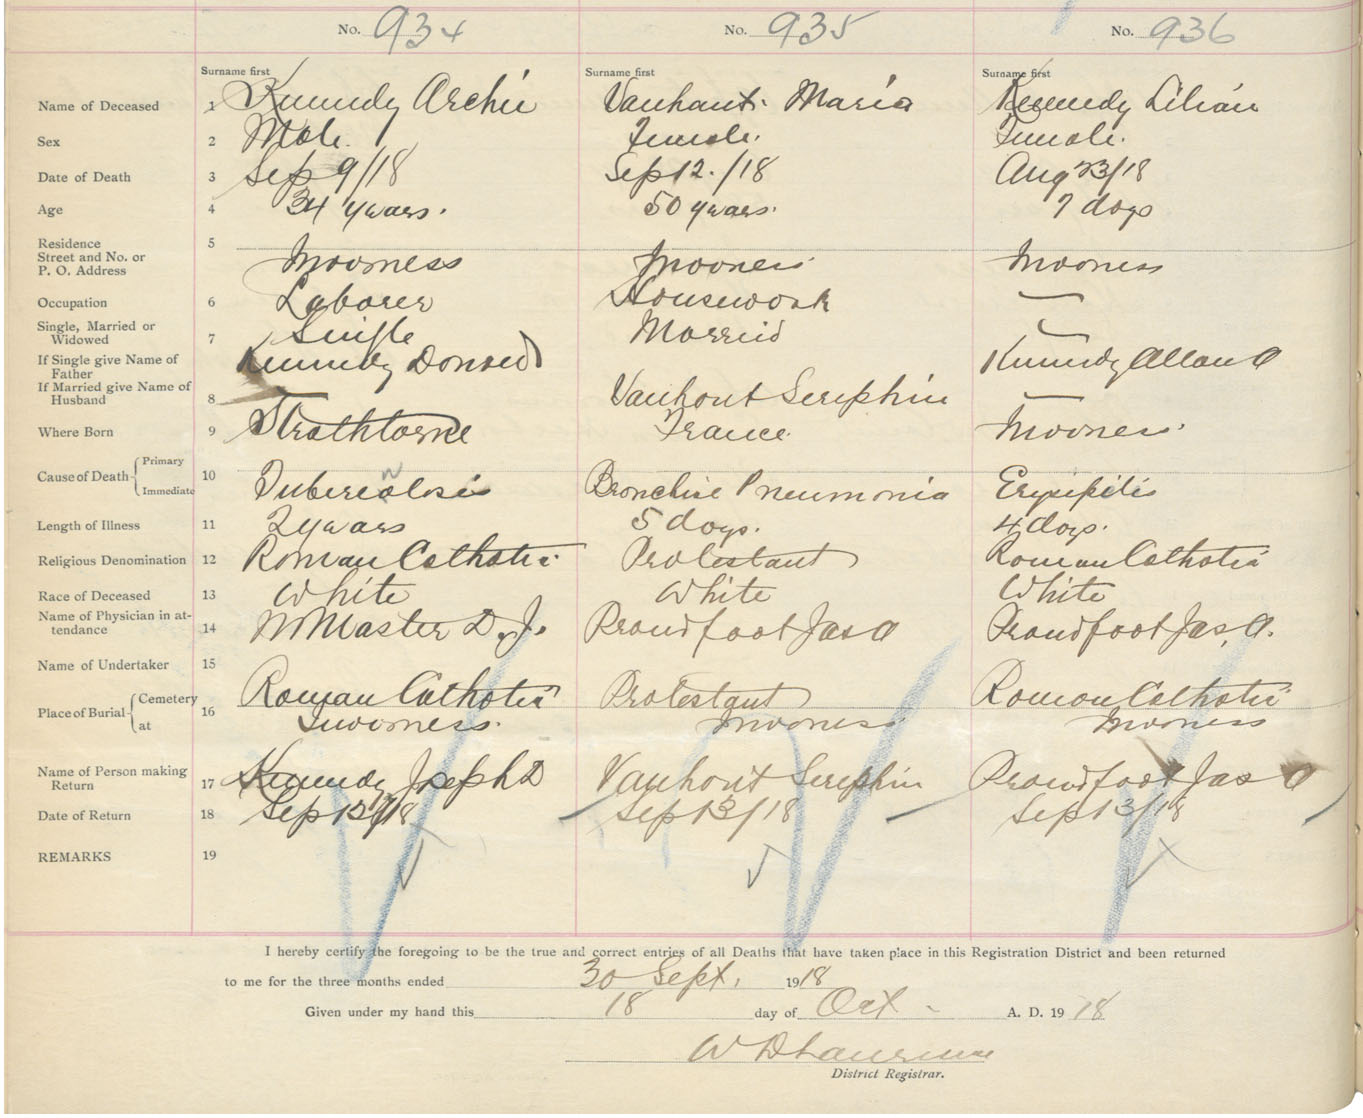 No. 934 No. 935 No. 936
Surname first Surname first Surname first
Name of Deceased 1 Kennedy Archie Vanhout. Maria Kennedy Lilian
Sex 2 Male. Female. Female.
Date of Death 3 Sep 9/18 Sep 12./18 Aug 23/18
Age 4 34 years. 50 years. 7 days
Residence 5
Street and No. or
P. O. Address Inverness Inverness Inverness
Occupation 6 Laborer Housework —
Single, Married or
Widowed 7 Single Married —
If Single give Name of
Father Kennedy Donald Kennedy Allan A
If Married give Name of
Husband 8 — Vanhout Seraphin —
Where Born 9 Strathlorne France. Inverness.
Cause of Death { Primary
Immediate 10 Tuberculosis Bronchial Pneumonia Erysipilis
Length of Illness 11 2 years 5 days. 4 days.
Religious Denomination 12 Roman Catholic Protestant Roman Catholic
Race of Deceased 13 White White White
Name of Physician in at-
tendance 14 McMaster D. J. Proudfoot Jas A Proudfoot Jas. A.
Name of Undertaker 15
Place of Burial { Cemetery
at 16 Roman Catholic Protestant Roman Catholic
Inverness. Inverness. Inverness
Name of Person making
Return 17 Kennedy Joseph D Vanhout Seraphin Proudfoot Jas A
Date of Return 18 Sep 13/18 Sep 13/18
REMARKS 19
I hereby certify the foregoing to be the true and correct entries of all Deaths that have taken place in this Registration District and been returned
to me for the three months ended 30 Sept. 1918
Given under my hand this 18 day of Oct - A. D. 1918
W D Lawrence
District Registrar.